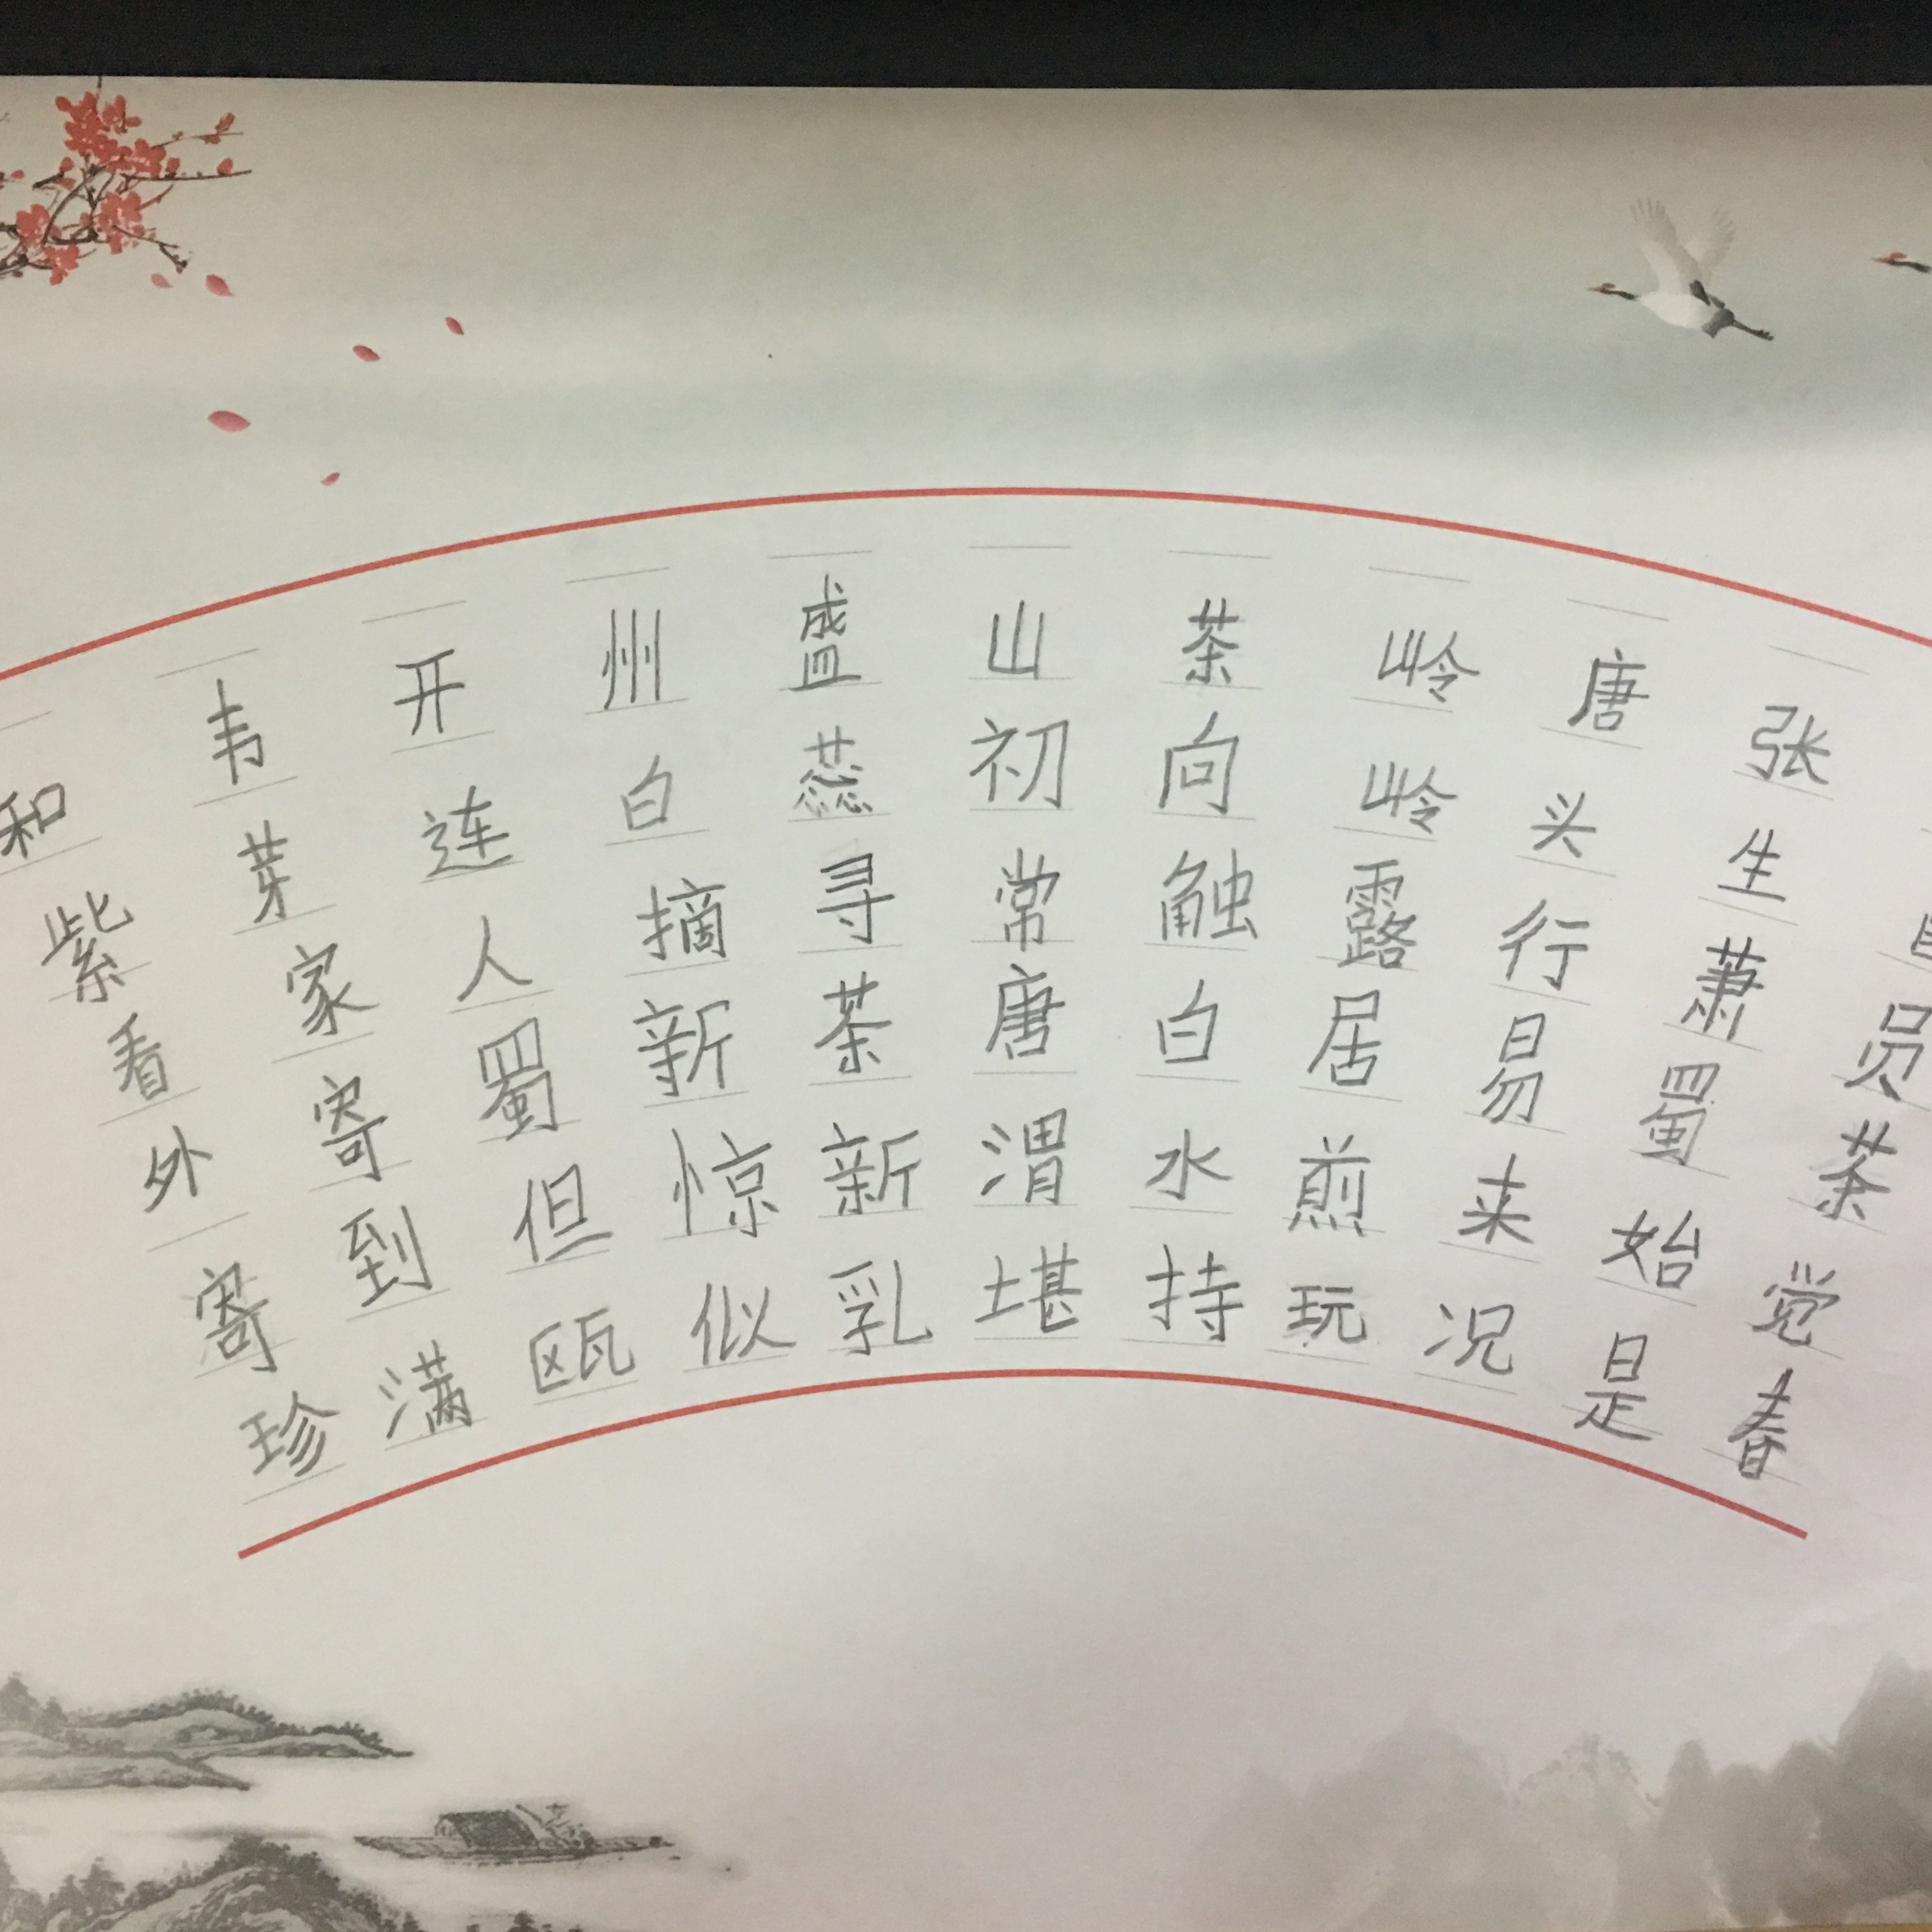 和韦开州盛山茶岭唐张
紫芽连白蕊初向岭头生
看家人摘寻常触露行萧员
外寄蜀新茶唐白居易蜀茶
寄到但惊新渭水煎来始觉
珍满瓯似乳堪持玩况是春